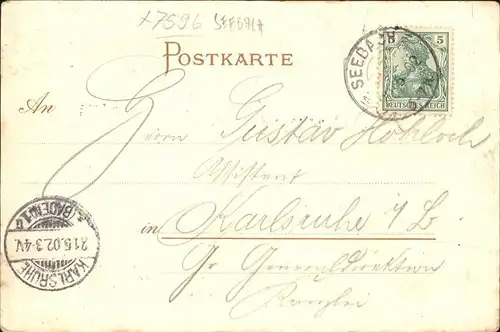 +7596 SEEBACH
POSTKARTE
SEEBACH
5 5
DEUTSCHES REICH
An
Herrn Gustav Hohloch
Assistent
in Karlsruhe i/B
Gr. Generaldirektion
Kanzlei
KARLSRUHE (BADEN) 1
21.5.02.3-4V.